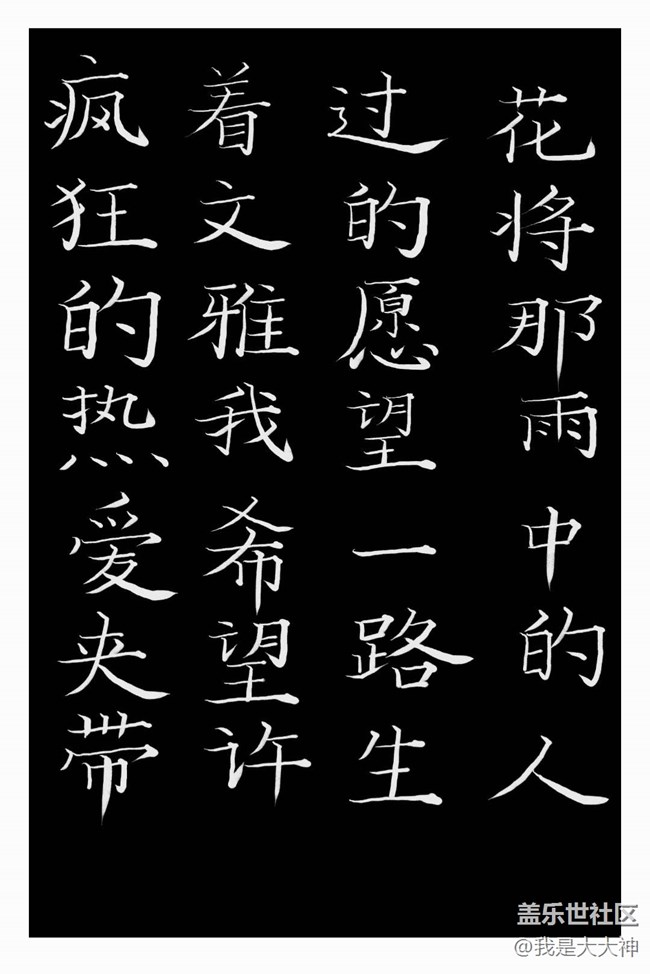 疯狂的热爱夹带
着文雅我希望许
过的愿望一路生
花将那雨中的人
盖乐世社区
@我是大大神